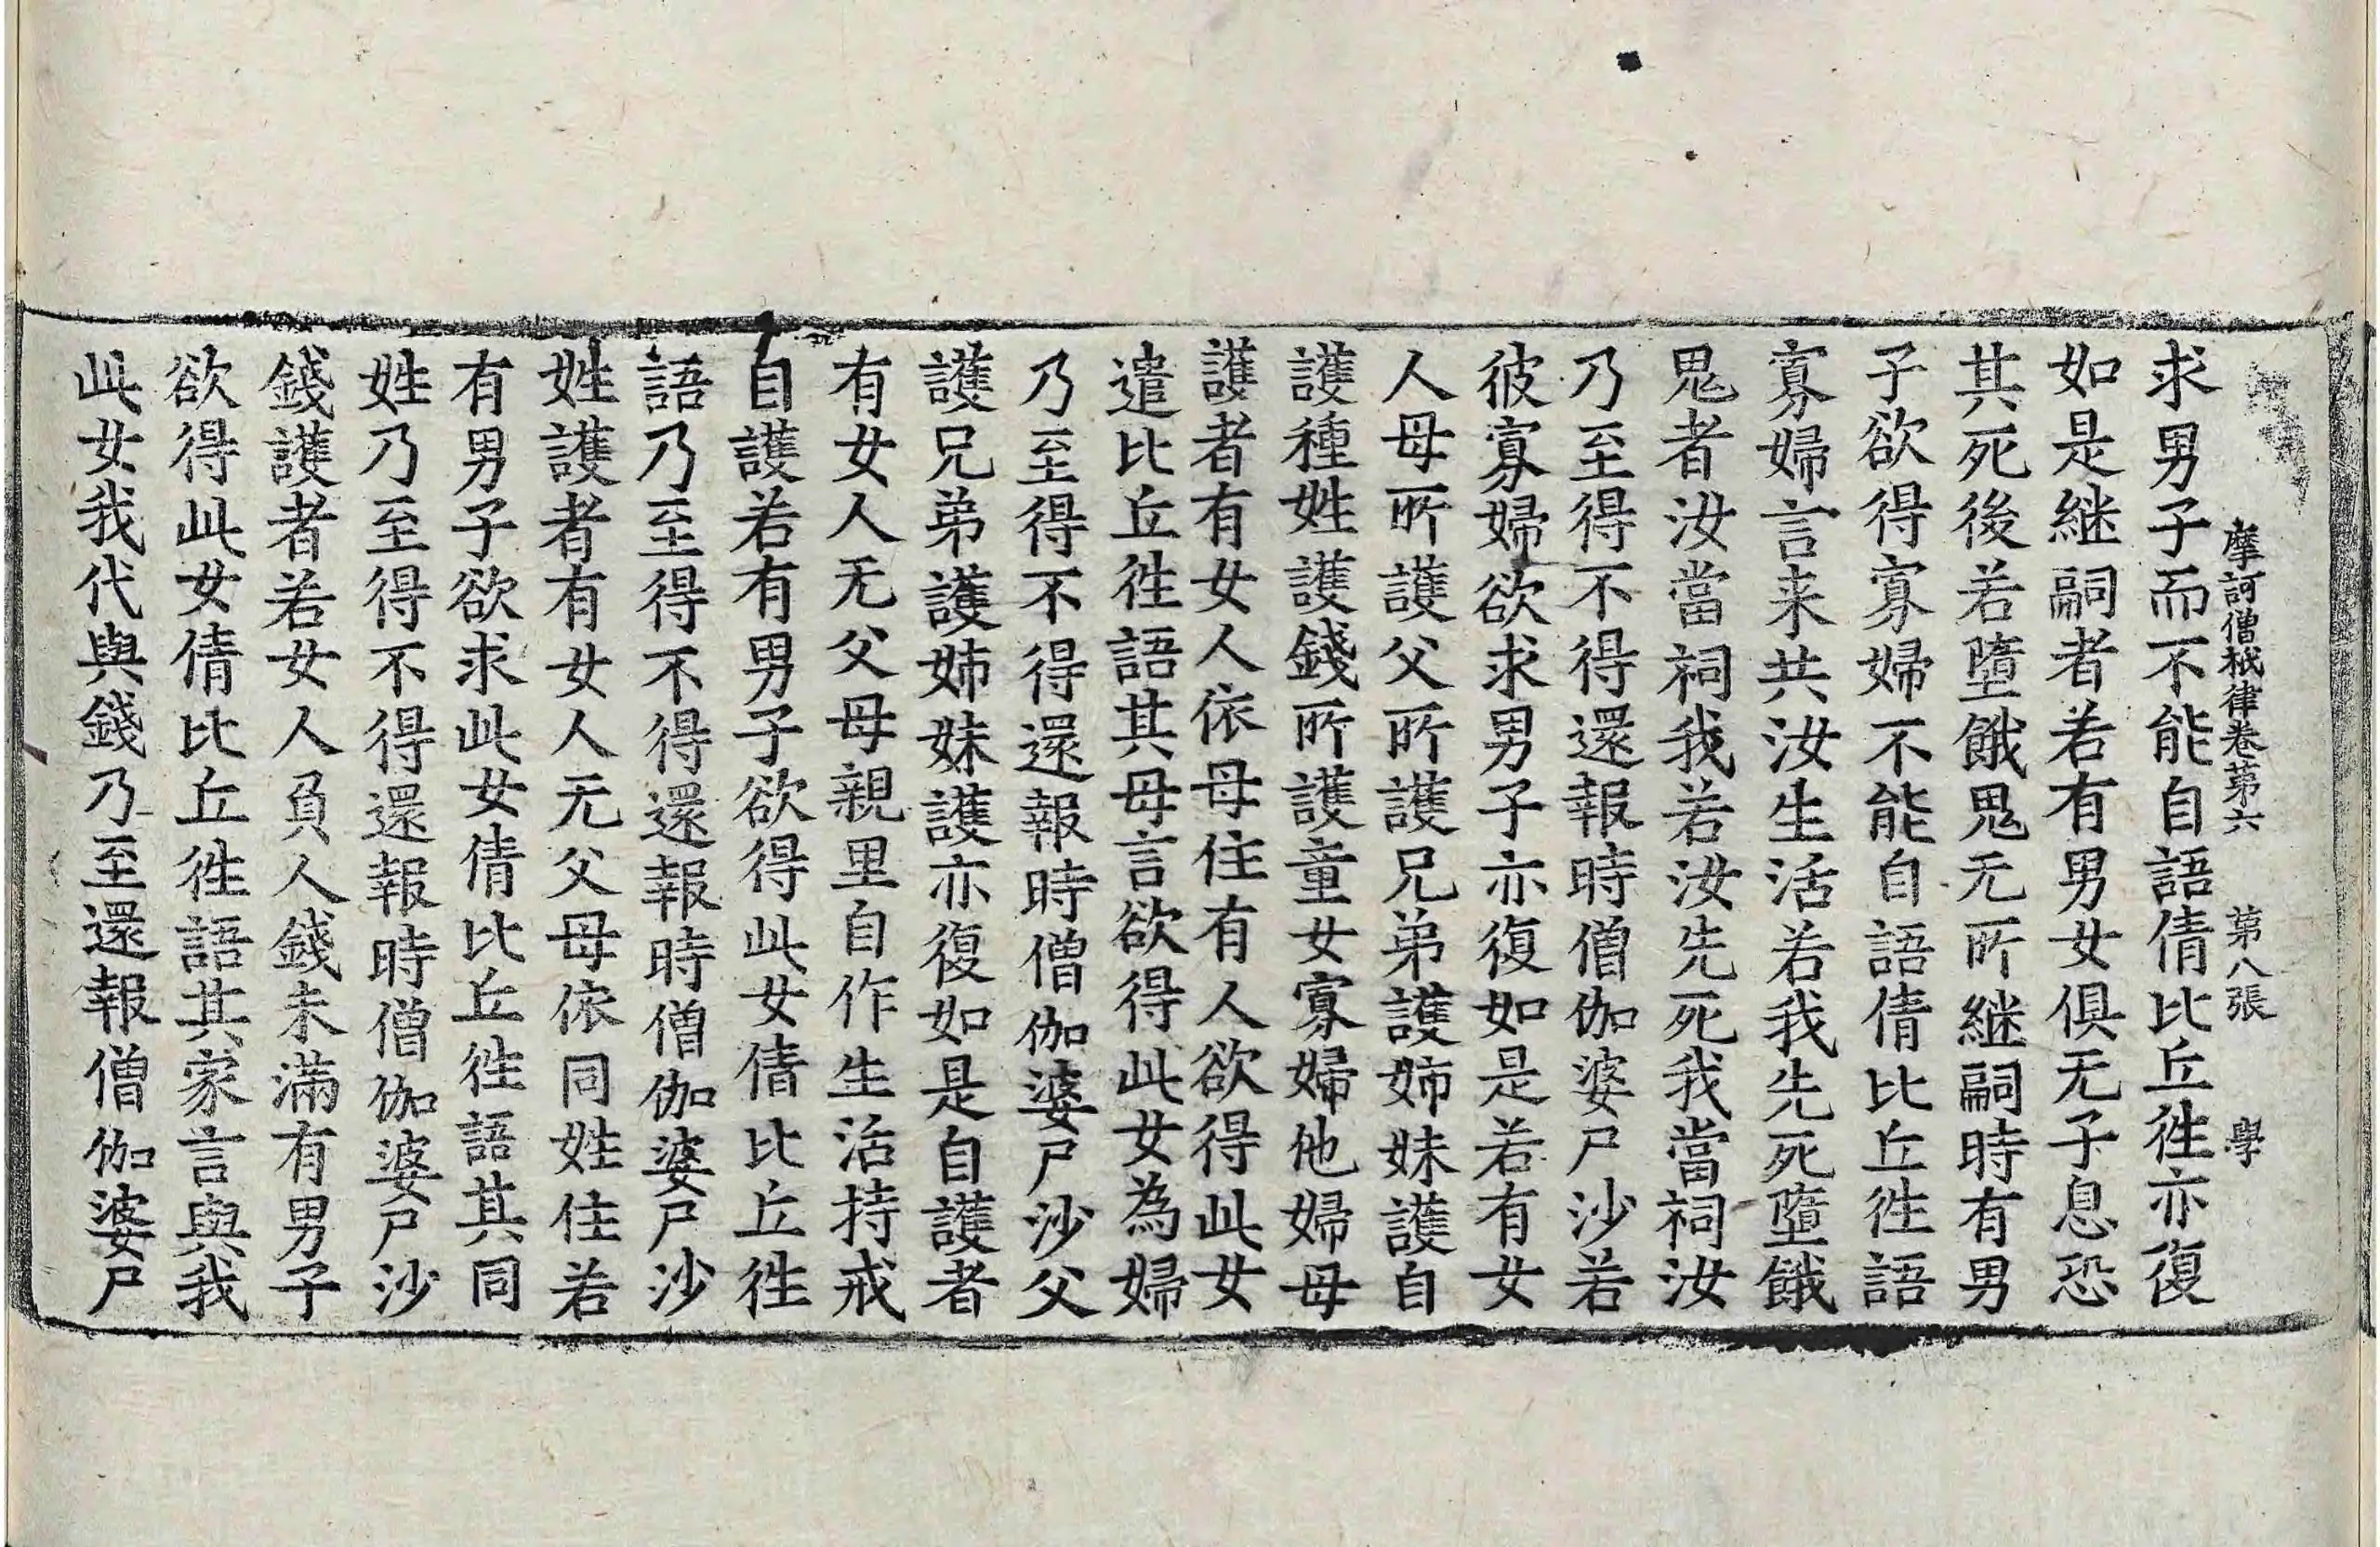 摩訶僧祇律卷第六 第八張 學
求男子而不能自語倩比丘往亦復
如是継嗣者若有男女俱无子息恐
其死後若墮餓鬼无所継嗣時有男
子欲得寡婦不能自語倩比丘往語
寡婦言来共汝生活若我先死墮餓
鬼者汝當祠我若汝先死我當祠汝
乃至得不得還報時僧伽婆尸沙若
彼寡婦欲求男子亦復如是若有女
人母所護父所護兄弟護姉妹護自
護種姓護錢所護童女寡婦他婦母
護者有女人依母住有人欲得此女
遣比丘往語其母言欲得此女為婦
乃至得不得還報時僧伽婆尸沙父
護兄弟護姉妹護亦復如是自護者
有女人无父母親里自作生活持戒
自護若有男子欲得此女倩比丘往
語乃至得不得還報時僧伽婆尸沙
姓護者有女人无父母依同姓住若
有男子欲求此女倩比丘往語其同
姓乃至得不得還報時僧伽婆尸沙
錢護者若女人負人錢未滿有男子
欲得此女倩比丘往語其家言與我
此女我代與錢乃至還報僧伽婆尸